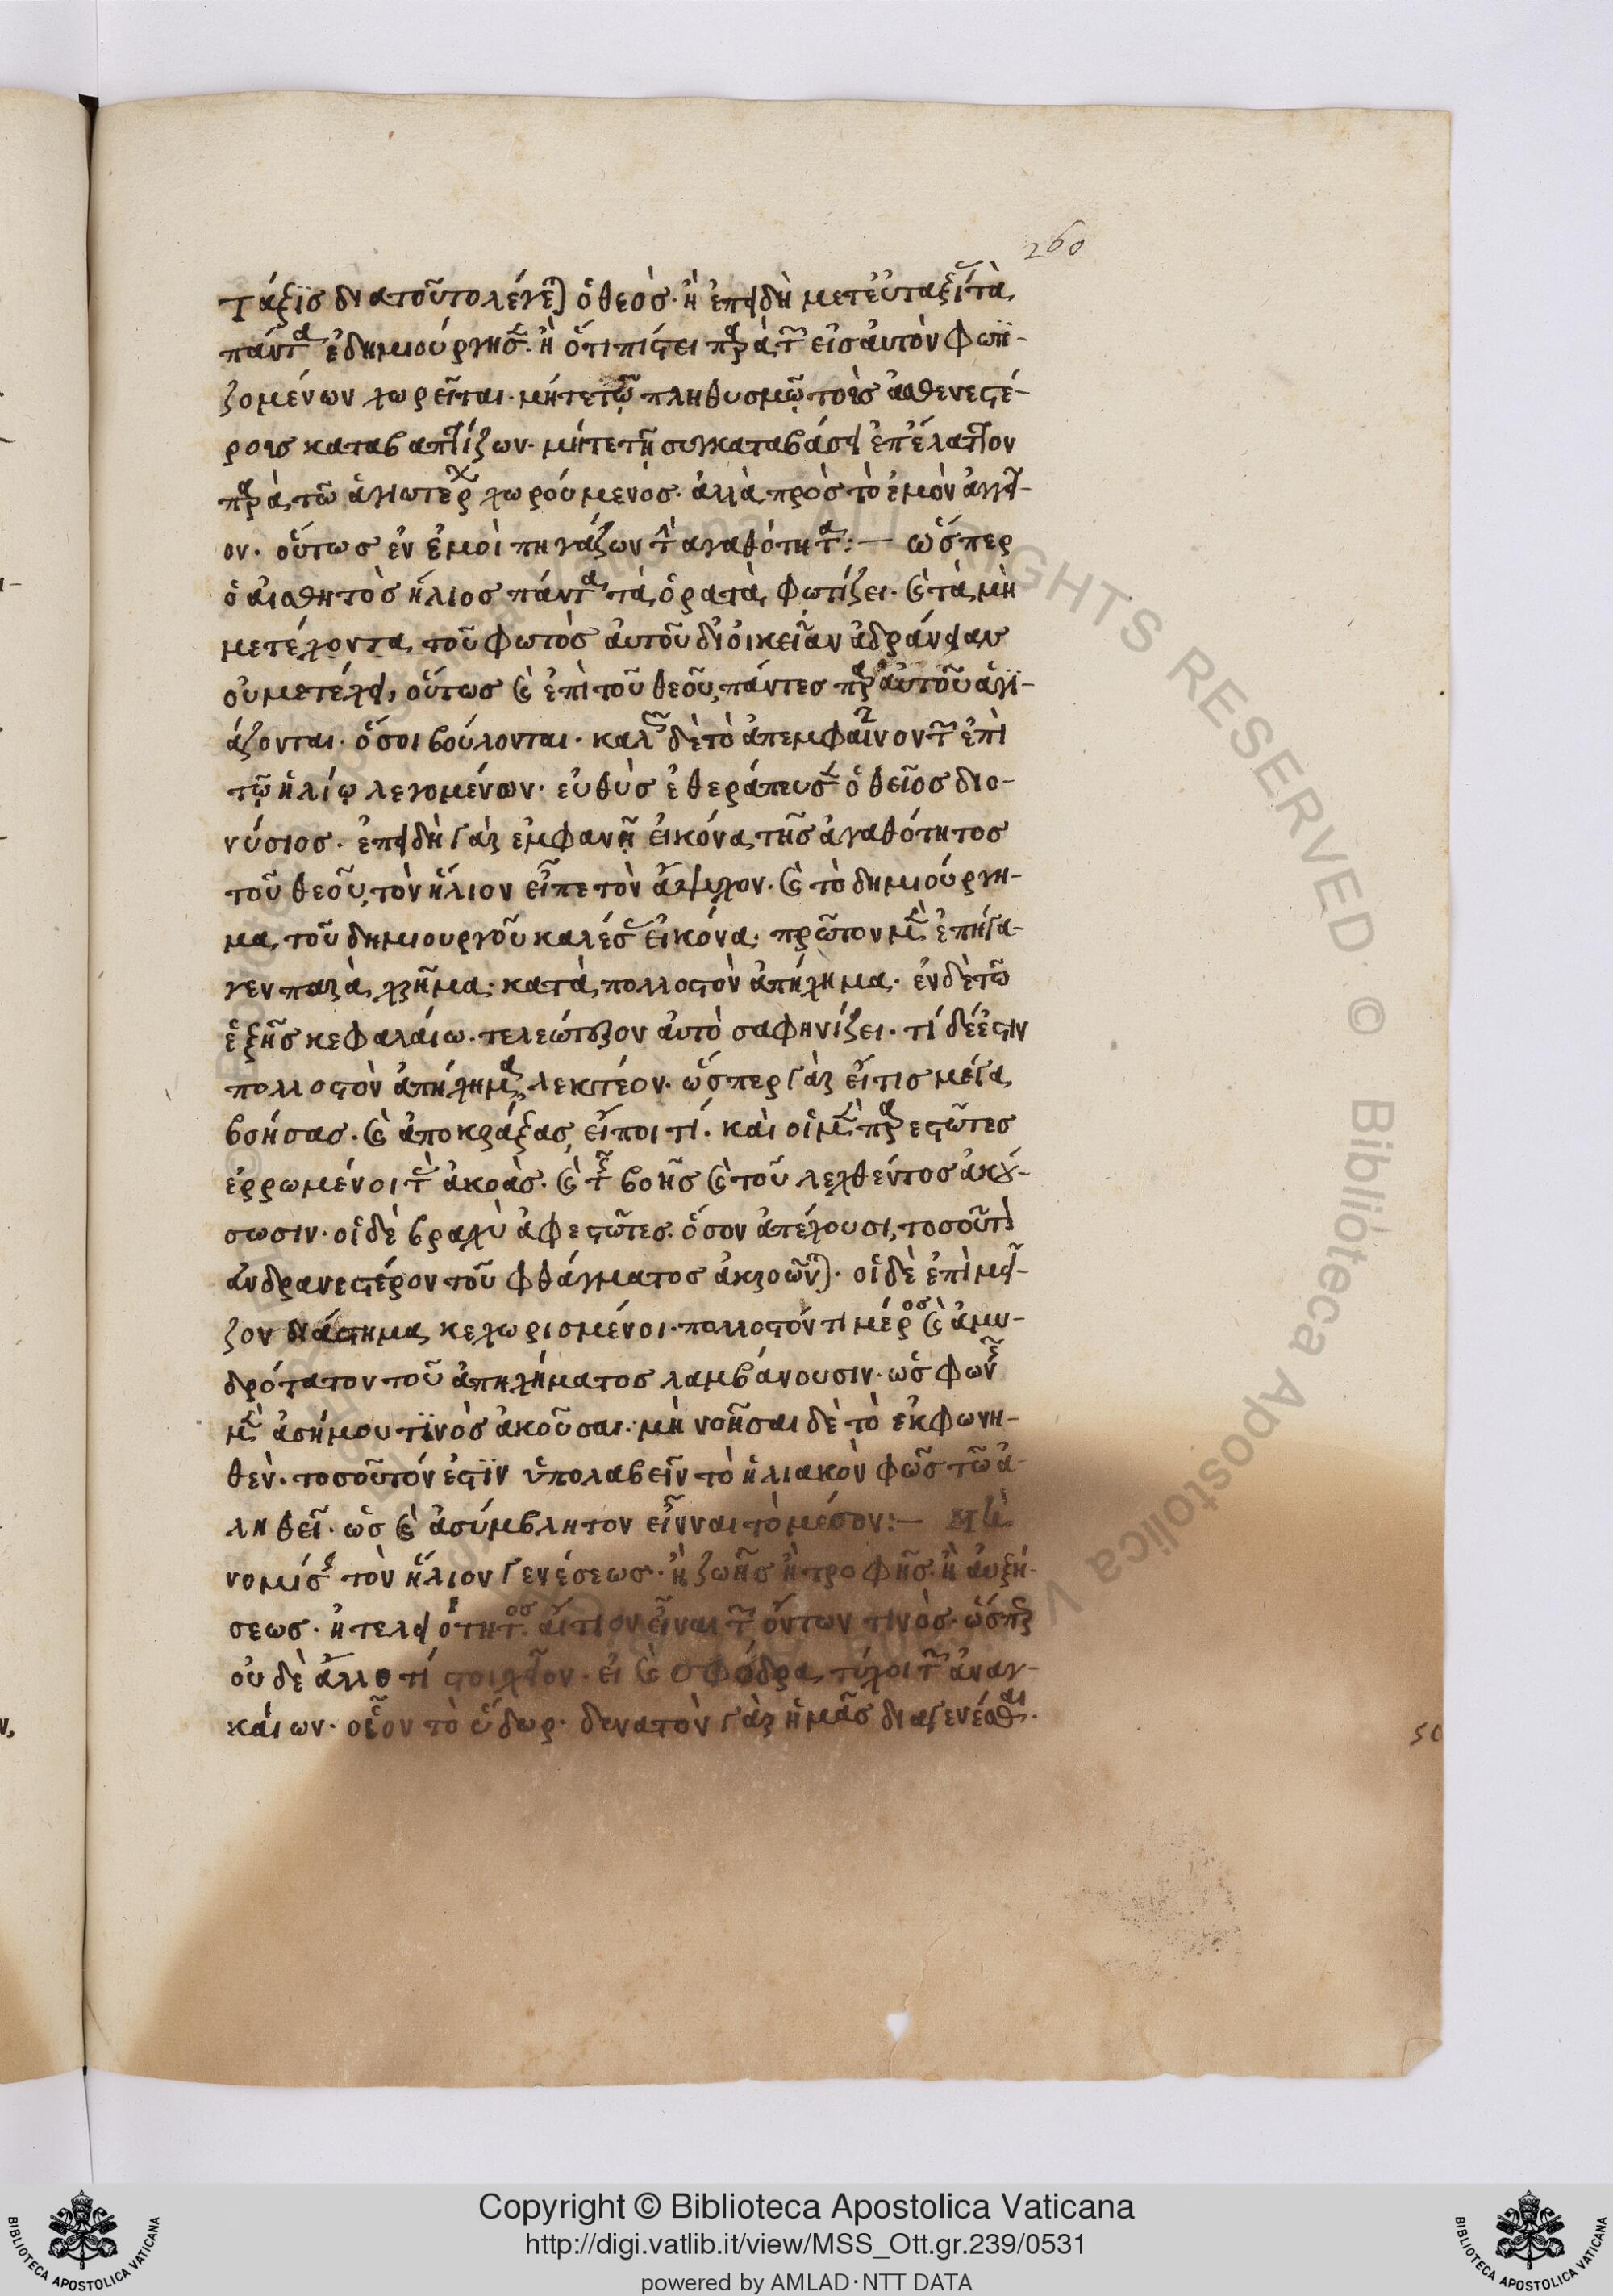 260
τάξις διατοῦτο λέγεται ὁ θεός· ἢ ἐπειδὴ μετ εὐταξίας τὰ
πάντα ἐδημιούργησεν· ἢ ὅτι πίστει παρὰ τῶν εἰς αὐτὸν φωτι-
ζομένων χωρεῖται· μήτε τῷ πληθυσμῷ τοῖς ἀσθενεστέ-
ροις καταβαπτίζων· μήτε τῇ συγκαταβάσει ἐπ' ἔλαττον
παρὰ τῶν ἁγιωτέρων χωρούμενος· ἀλλὰ πρὸς τὸ ἐμὸν ἀγγεῖ-
ον· οὕτως ἐν ἐμοὶ πηγάζων τὴν ἀγαθότητα:— ὥσπερ
ὁ αἰσθητὸς ἥλιος πάντα τὰ ὁρατὰ φωτίζει· καὶ τὰ μὴ
μετέχοντα τοῦ φωτὸς αὐτοῦ δι' οἰκείαν ἀδράνειαν
οὐ μετέχει, οὕτως καὶ ἐπὶ τοῦ θεοῦ, πάντες παρ' αὐτοῦ ἁγι-
άζονται· ὅσοι βούλονται· καλῶς δὲ τὸ ἀπεμφαῖνον τῶν ἐπὶ
τῷ ἡλίῳ λεγομένων· εὐθὺς ἐθεράπευσεν ὁ θεῖος διο-
νύσιος· ἐπειδὴ γὰρ ἐμφανῆ εἰκόνα τῆς ἀγαθότητος
τοῦ θεοῦ, τὸν ἥλιον εἶπε τὸν ἄψυχον· καὶ τὸ δημιούργη-
μα τοῦ δημιουργοῦ καλέσας εἰκόνα· πρῶτον μὲν ἐπήγα-
γεν παρὰ χρῆμα· κατὰ πολλοστὸν ἀπήχημα· ἐν δὲ τῶ
ἑξῆς κεφαλαίω· τελεώτερον αὐτὸ σαφηνίζει· τί δέ ἐστιν
πολλοστὸν ἀπήχημα, λεκτέον· ὥσπερ γὰρ εἴ τις μέγα
βοήσας· καὶ ἀποκράξας, εἴποι τί· καὶ οἱ μὲν παρεστῶτες
ἐρρωμένοι τὰς ἀκοὰς· καὶ τῆς βοῆς καὶ τοῦ λεχθέντος ἀκού-
σωσιν· οἱ δὲ βραχὺ ἀφεστῶτες· ὅσον ἀπέχουσι, τοσοῦτον
ἀνδρανεστέρον τοῦ φθάγματος ἀκροῶνται· οἱ δὲ ἐπὶ μεῖ-
ζον διάστημα κεχωρισμένοι· πολλοστόν τι μέρος καὶ ἀμυ-
δρότατον τοῦ ἀπηχήματος λαμβάνουσιν· ὡς φωνῆς
μὲν ἀσήμου τινὸς ἀκοῦσαι· μὴ νοῆσαι δὲ τὸ ἐκφωνη-
θὲν· τοσοῦτόν ἐστιν ὑπολαβεῖν τὸ ἡλιακὸν φῶς τῶ ἀ-
ληθεῖ· ὡς καὶ ἀσύμβλητον εἶνναι τὸ μέσον:— Μὴ
νομίσῃς τὸν ἥλιον γενέσεως· ἢ ζωῆς ἢ τροφῆς· ἢ αὐξή-
σεως· ἢ τελειότητος αἴτιον εἶναι τῶν ὄντων τινὸς· ὥσπερ
οὐδὲ ἄλλο τί στοιχεῖον· εἰ καὶ σφόδρα τύχοι τῶν ἀναγ-
καίων· οἷον τὸ ὕδωρ· δυνατὸν γὰρ ἡμᾶς διαγενέσθαι·
50
ALL RIGHTS RESERVED © Biblioteca Apostolica Vaticana
Copyright © Biblioteca Apostolica Vaticana
http://digi.vatlib.it/view/MSS_Ott.gr.239/0531
powered by AMLAD·NTT DATA
BIBLIOTECA APOSTOLICA VATICANA
BIBLIOTECA APOSTOLICA VATICANA